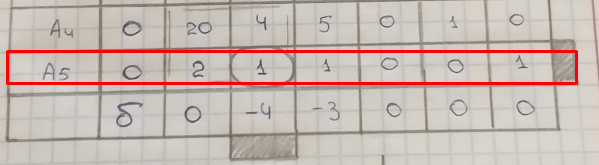 A4 0 20 4 5 0 1 0
A5 0 2 1 1 0 0 1
δ 0 -4 -3 0 0 0